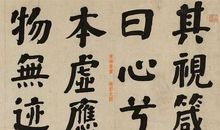 其視箴
曰心兮
本虛應
物無迹